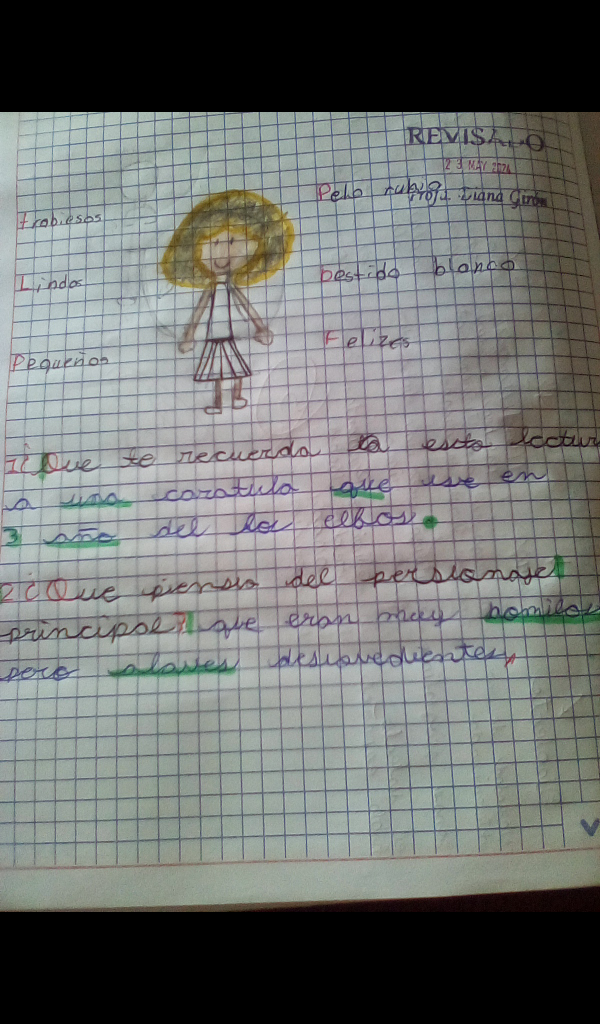 REVISADO
23 MAY 2024
Pelo rubio Profa. Diana Girón
trabiesos
Lindos
bestido blanco
Pequeños
Felizes
1¿Que te recuerda ta esta lectur
a una caratula que ise en
3 año del los elbos.
2¿Que piensa del persionaje
principal? que eran muy bonitos
pero alaves desuvedientes,